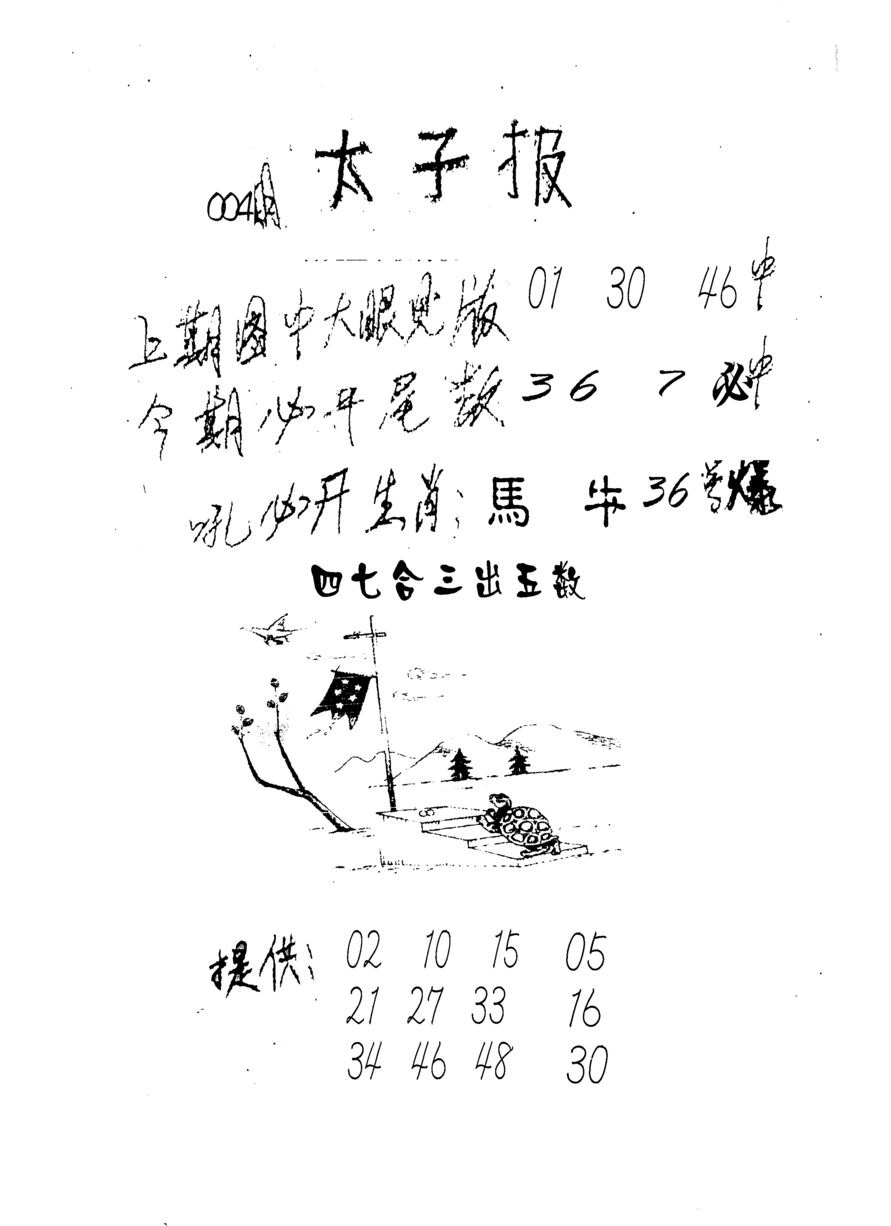 太子报
004期
上期图中大眼见版 01 30 46中
今期必开尾数 3 6 7 必中
吼必开生肖：馬 牛 36号爆
四七合三出五数
提供： 02 10 15 05
21 27 33 16
34 46 48 30